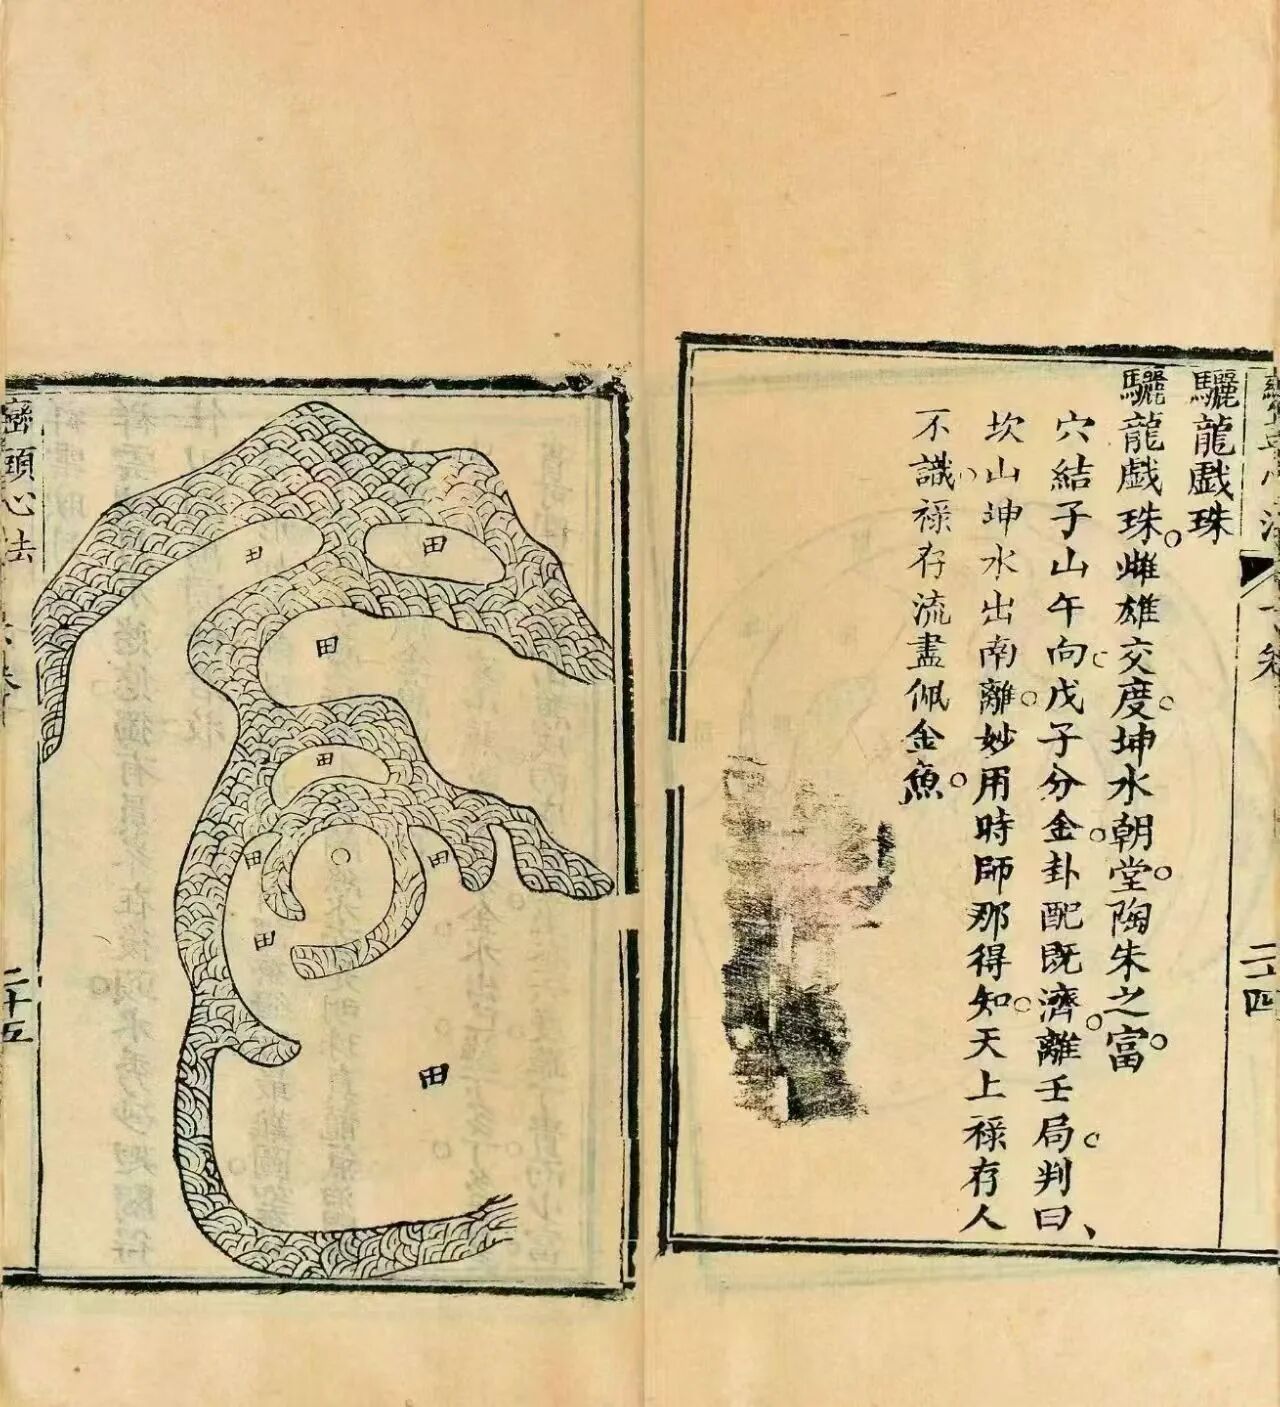 驪龍戲珠
驪龍戲珠。雌雄交度。坤水朝堂。陶朱之富。
穴結子山午向。戊子分金。卦配既濟。離壬局。判曰、
坎山坤水出南離。妙用時師那得知。天上祿存人
不識。祿存流盡佩金魚。
二十四
巒頭心法
二十五
田
田
田
田
田
田
田
田